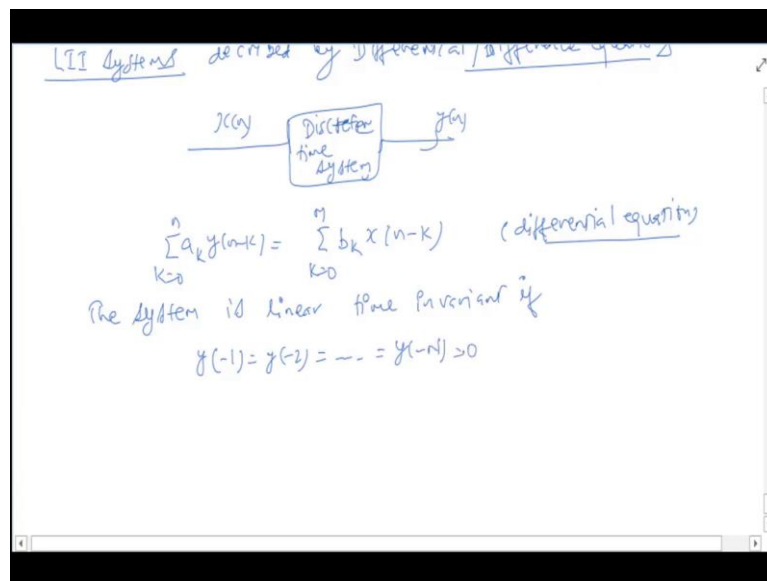 LTI Systems decribed by Differential/Difference Equations
x(n)
Discrete
time
system
y(n)
n
∑ a_k y(n-k) =
k=0
M
∑ b_k x(n-k)
k=0
(differential equation)
The system is linear time invariant if
y(-1) = y(-2) = ---- = y(-N) = 0